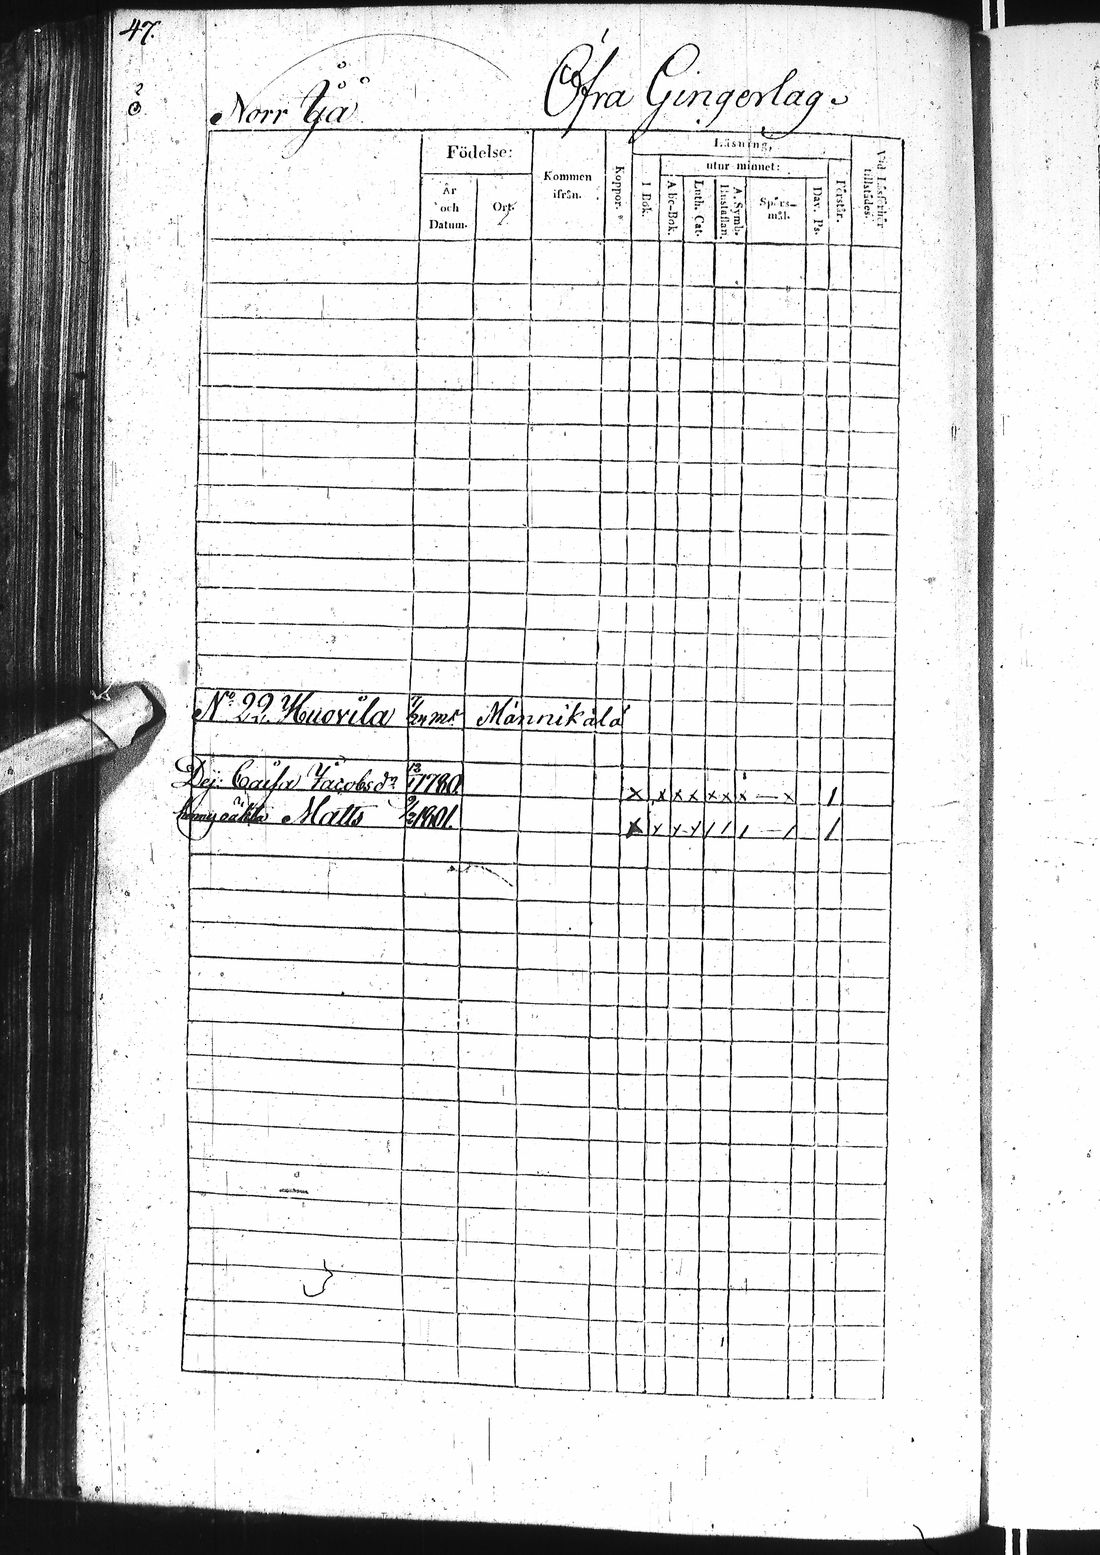 47.
Norr Yå Öfra Gingerlag.
Födelse:
År och Datum.
Ort.
Kommen ifrån.
Koppor.
Läsning,
utur minnet:
I Bok.
Abc-Bok.
Luth. Cat.
Hustaflan.
A. Symb.
Spörs-mål.
Dav. Ps.
Förstår.
Vid Läsförhör tillstädes:
No 22. Huovila 7/24 ml Mánnikälä
Dej. Caisa Jacobsdr 13/11 1780. x x x x x x x — x 1
Matts 9/2 1801. x x x x 1 1 1 — 1 1